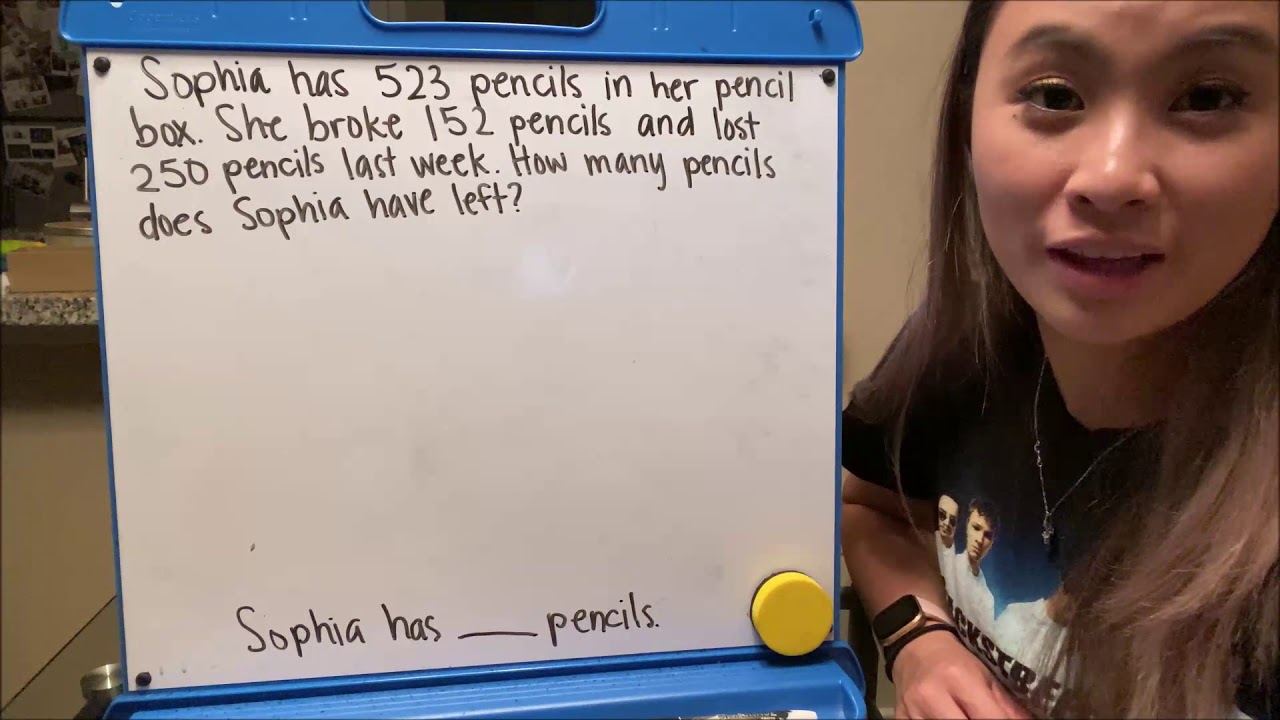 Sophia has 523 pencils in her pencil
box. She broke 152 pencils and lost
250 pencils last week. How many pencils
does Sophia have left?
Sophia has ___ pencils.